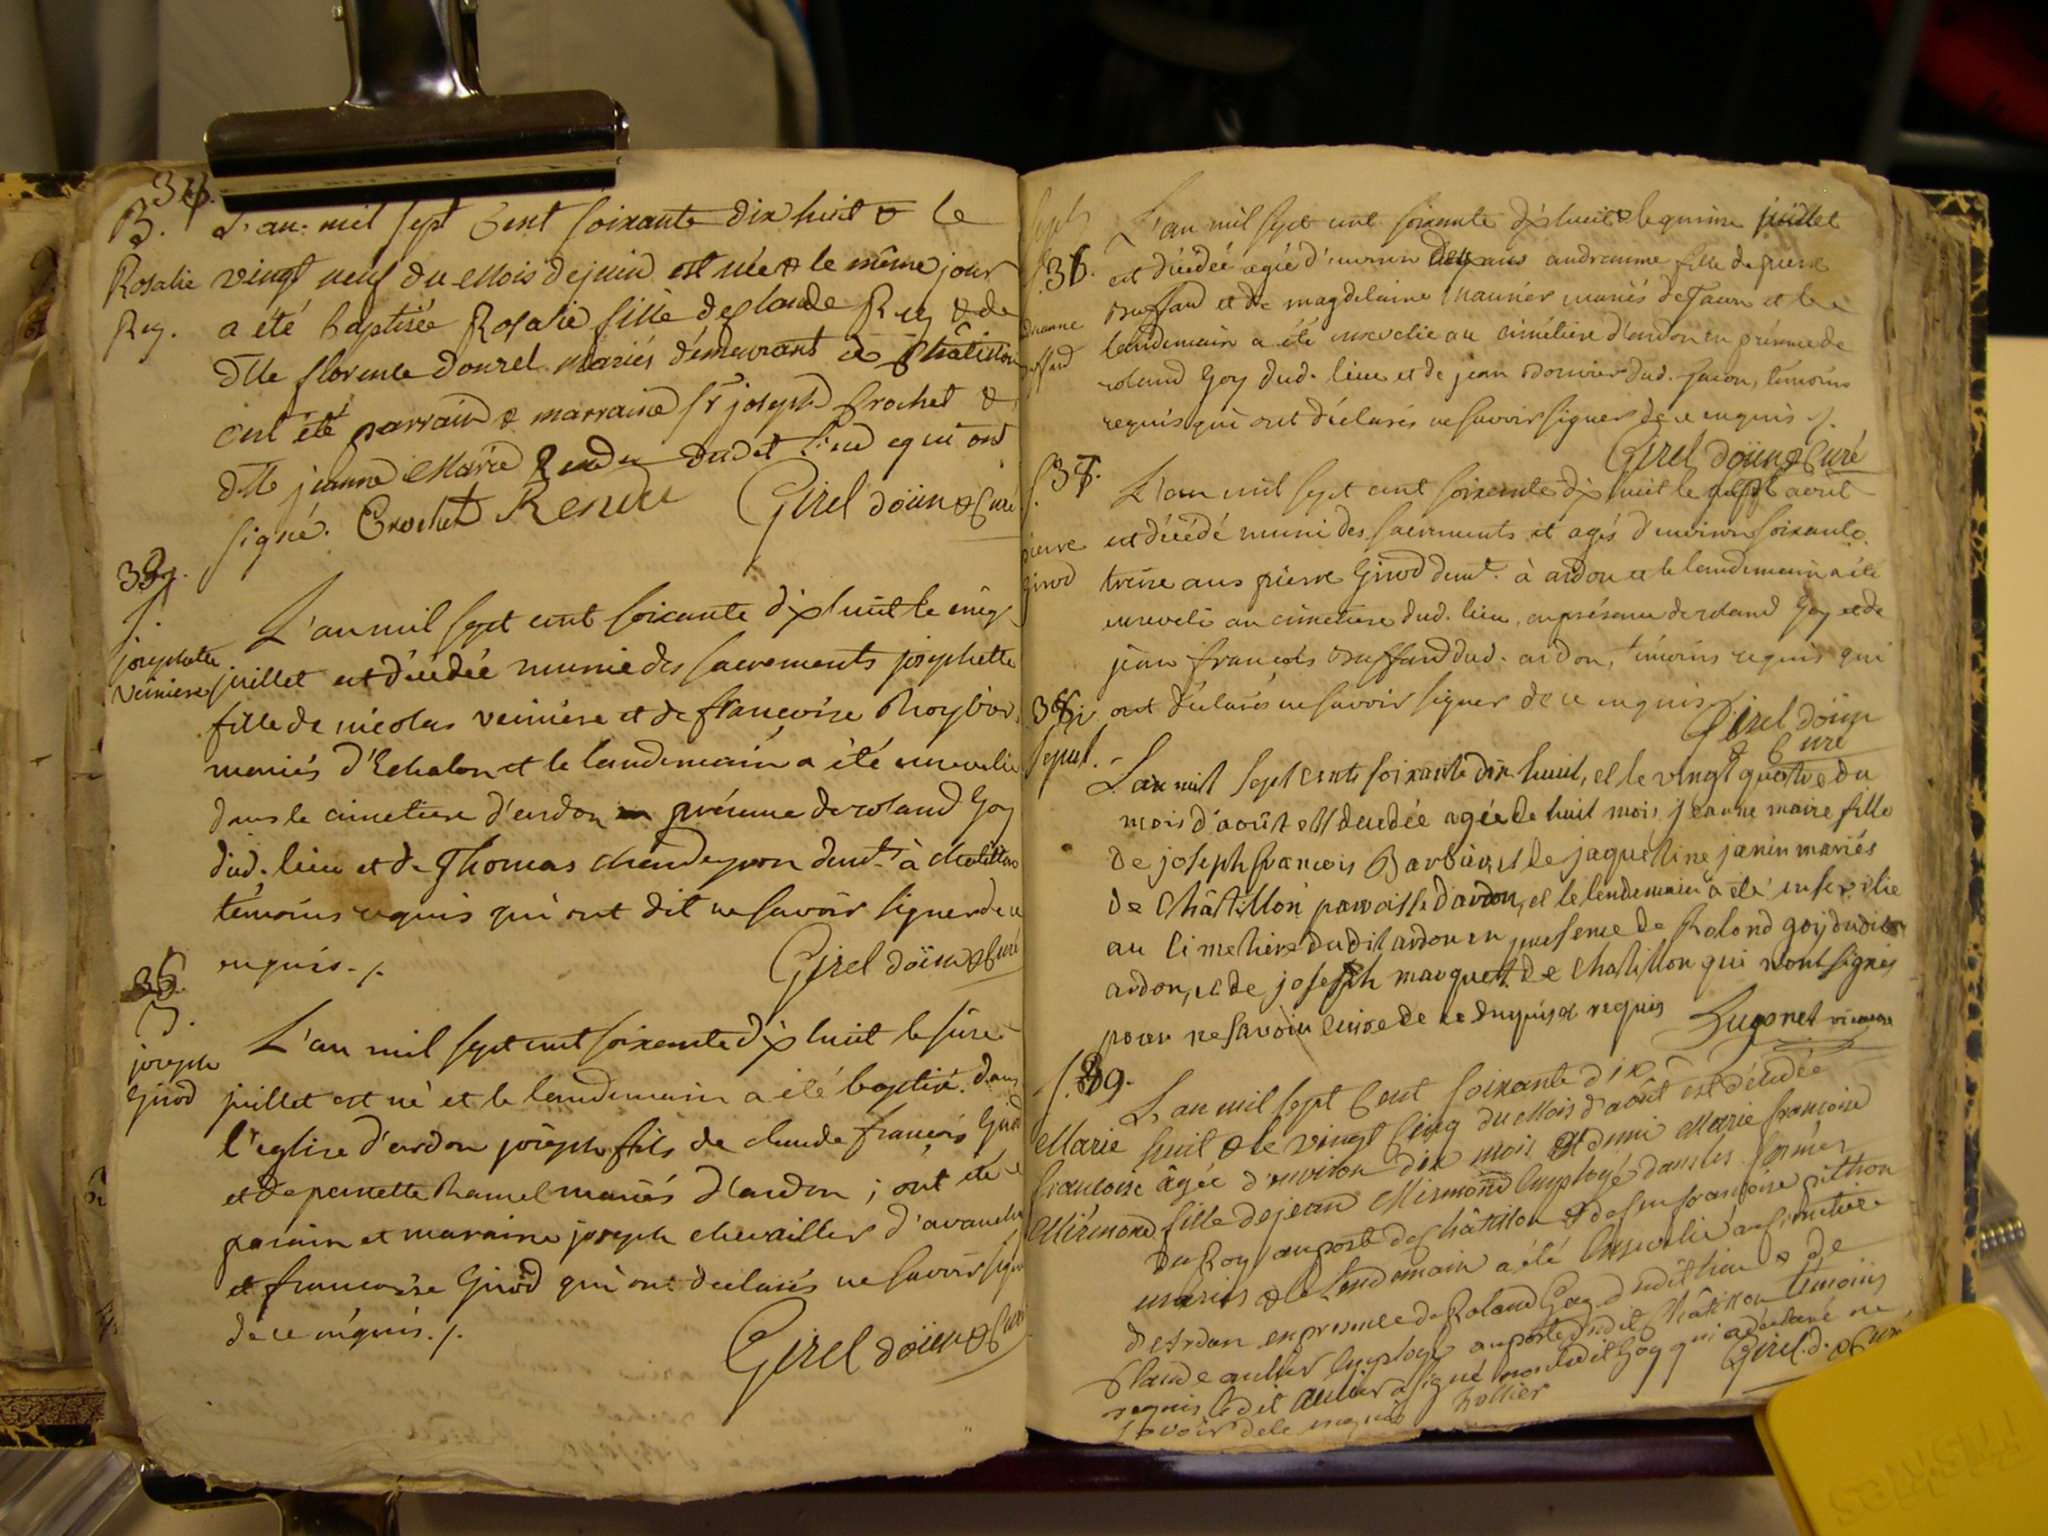 34.
B. L'an mil sept Cent soixante dix huit & le
Rosalie vingt neuf du Mois de juin est née & le même jour
Rey. a été baptisée Rosalie fille de Claude Rey & de
dlle florence dourel mariés demeurants à Châtillon
ont été parrain & marraine sr joseph Crochet &
dlle jeanne Marie Rendu dudit lieu qui ont
signé. Crochet Rendu Girel doïen & Curé
L'an mil sept cent soixante dix huit le cinq
josephette juillet est décédée munie des sacrements josephette
veiniere fille de nicolas veiniere et de francoise
mariés d'Echalon et le landemain a été ensevelie
dans le cimetiere d'ardon en présence de roland Goy
dud. lieu et de Thomas demt. à chatillon
témoins requis qui ont dit ne savoir signer de ce
enquis ./. Girel doïen & Curé
35.
joseph L'an mil sept cent soixante dix huit le
Girod juillet est né et le landemain a été baptisé dans
l'eglise d'ardon joseph fils de claude françois Girod
et de pernette hamel mariés d'ardon ; ont été
parain et maraine joseph chevailler
et francoise Girod qui ont declarés ne savoir signer
de ce enquis ./.
Girel doïen & Curé
36. L'an mil sept cent soixante dix huit & le quinze juillet
est décédée agée d'environ fille de pierre
Buffard et de magdelaine mariés et le
landemain a été ensevelie au cimetiere d'ardon en présence de
roland Goy dud. lieu et de jean témoins
requis qui ont déclarés ne savoir signer de ce enquis ./.
Girel doïen & Curé
37. L'an mil sept cent soixante dix huit le août
pierre est décédé muni des sacrements et agés d'environ soixante
girod treize ans pierre Girod demt. à ardon et le landemain a été
enseveli au cimetiere dud. lieu, en présence de roland Goy et de
jean françois Buffard dud. ardon, témoins requis qui
38. ont déclarés ne savoir signer de ce enquis Girel doïen
& Curé
sepul. L'an mil sept cents soixante dix huit, et le vingt quatre du
mois d'août est decedée agée de huit mois jeanne marie fille
de joseph francois Barbier, et de jaqueline janin mariés
de Châtillon paroisse d'ardon, et le lendemain a été ensevelie
au Cimetiere dudit ardon en presence de Roland goy dudit
ardon, et de joseph marquet de Chatillon qui n'ont signés
pour ne savoir ecrire de ce enquis et requis vicaire
39. L'an mil sept Cent soixante dix
Marie huit & le vingt Cinq du Mois d'août est décédée
francoise âgée d'environ dix mois et demi Marie francoise
Mirmond fille de jean Mirmond Employé dans les fermes
du Roy au poste de Châtillon & de feu francoise pithon
mariés & le Lendemain a été Ensevelie au Cimetiere
de Ardon en presence de Roland Goy dudit lieu & de
Claude Employé au poste dudit Châtillon témoins
requis ledit a signé non ledit Goy qui a déclaré ne
savoir de ce enquis Girel d. & Curé